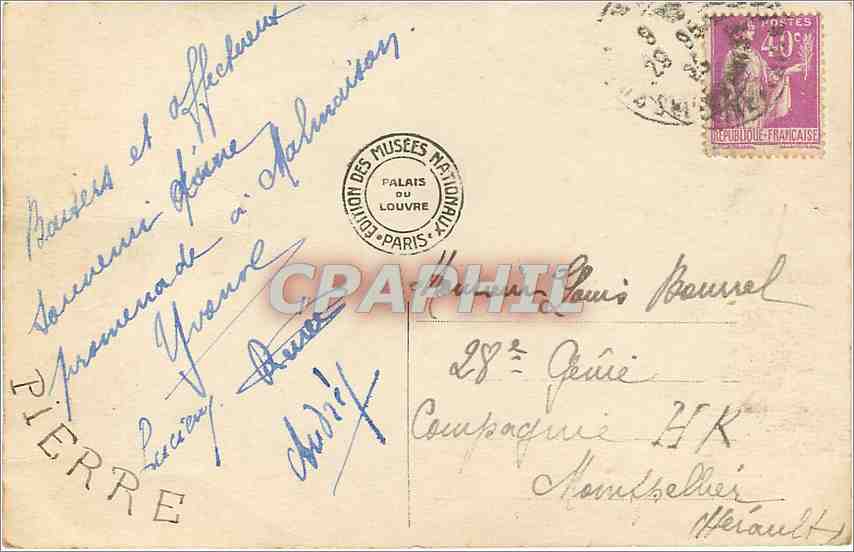 Baisers et affectueux
souvenir d'une
promenade à Malmaison.
Yvonne
Renée
Lucien
André
PIERRE
EDITION DES MUSÉES NATIONAUX
PARIS
PALAIS
DU
LOUVRE
CPARHIL
POSTES
40c
RÉPUBLIQUE-FRANÇAISE
Monsieur Louis Bourrel
28e Génie
Compagnie HK
Montpellier
Hérault